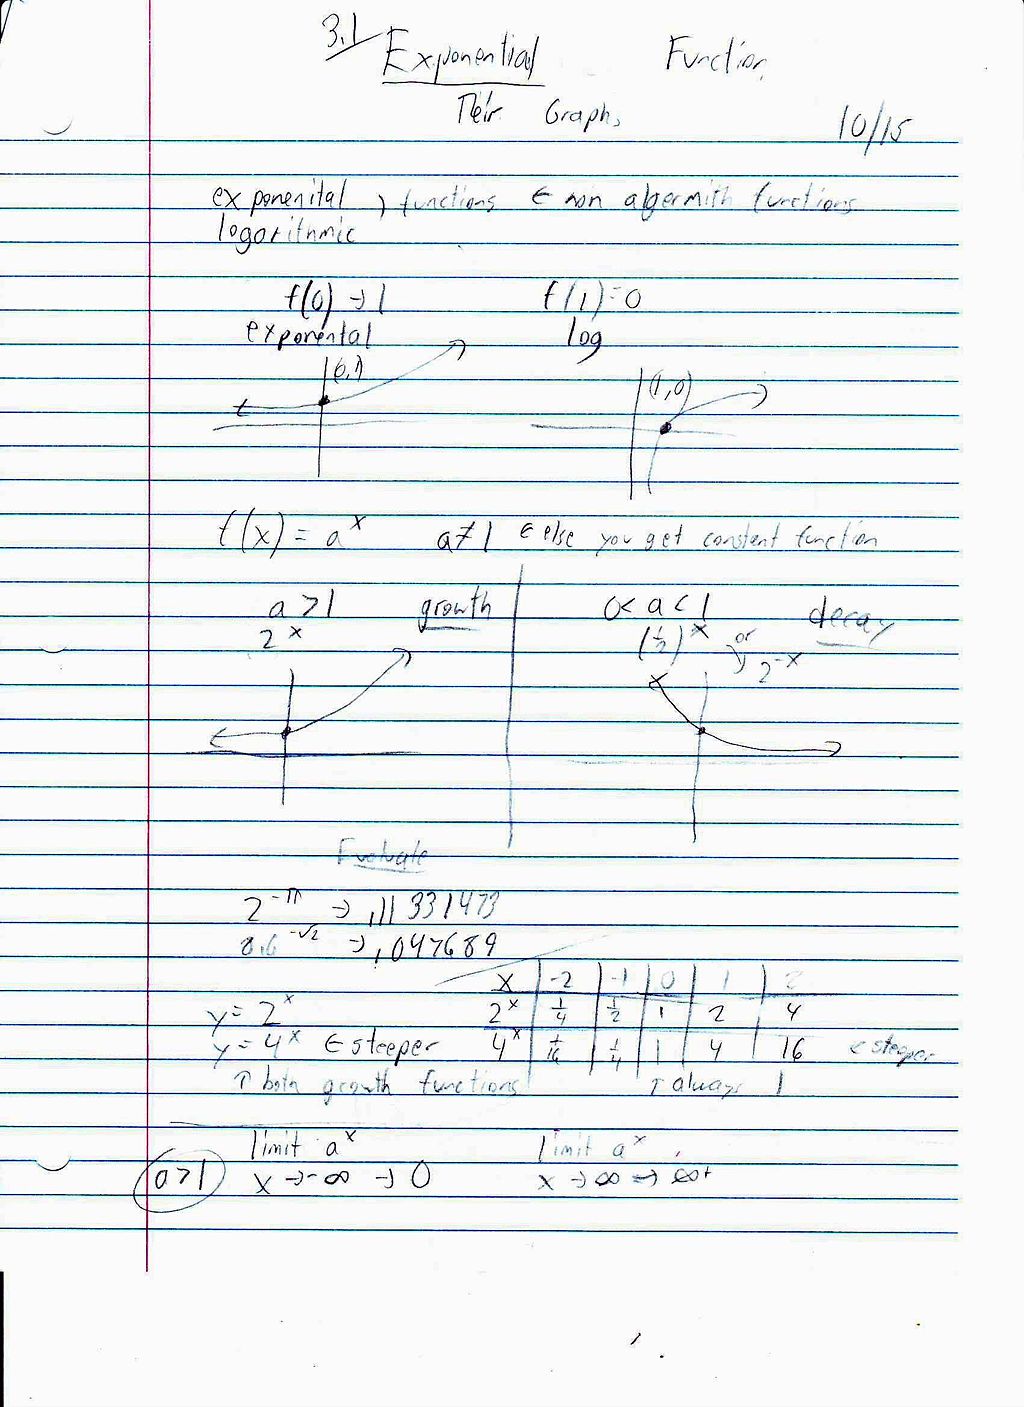 3.1 Exponential Function
Their Graphs
10/15
exponenital ) functions ← non algermith functions
logorithmic
f(0) → 1 f(1) = 0
exponental log
(0,1) (1,0)
f(x) = a^x a ≠ 1 ← else you get constant function
a > 1 growth 0 < a < 1 decay
2^x (1/2)^x or 2^-x
Evaluate
2^-π → .11331473
8.6^-√2 → .047689
x | -2 | -1 | 0 | 1 | 2
y = 2^x 2^x | 1/4 | 1/2 | 1 | 2 | 4
y = 4^x ← steeper 4^x | 1/16 | 1/4 | 1 | 4 | 16 ← steeper
↑ both growth functions ↑ always 1
limit a^x limit a^x
a>1 x → -∞ → 0 x → ∞ → ∞+